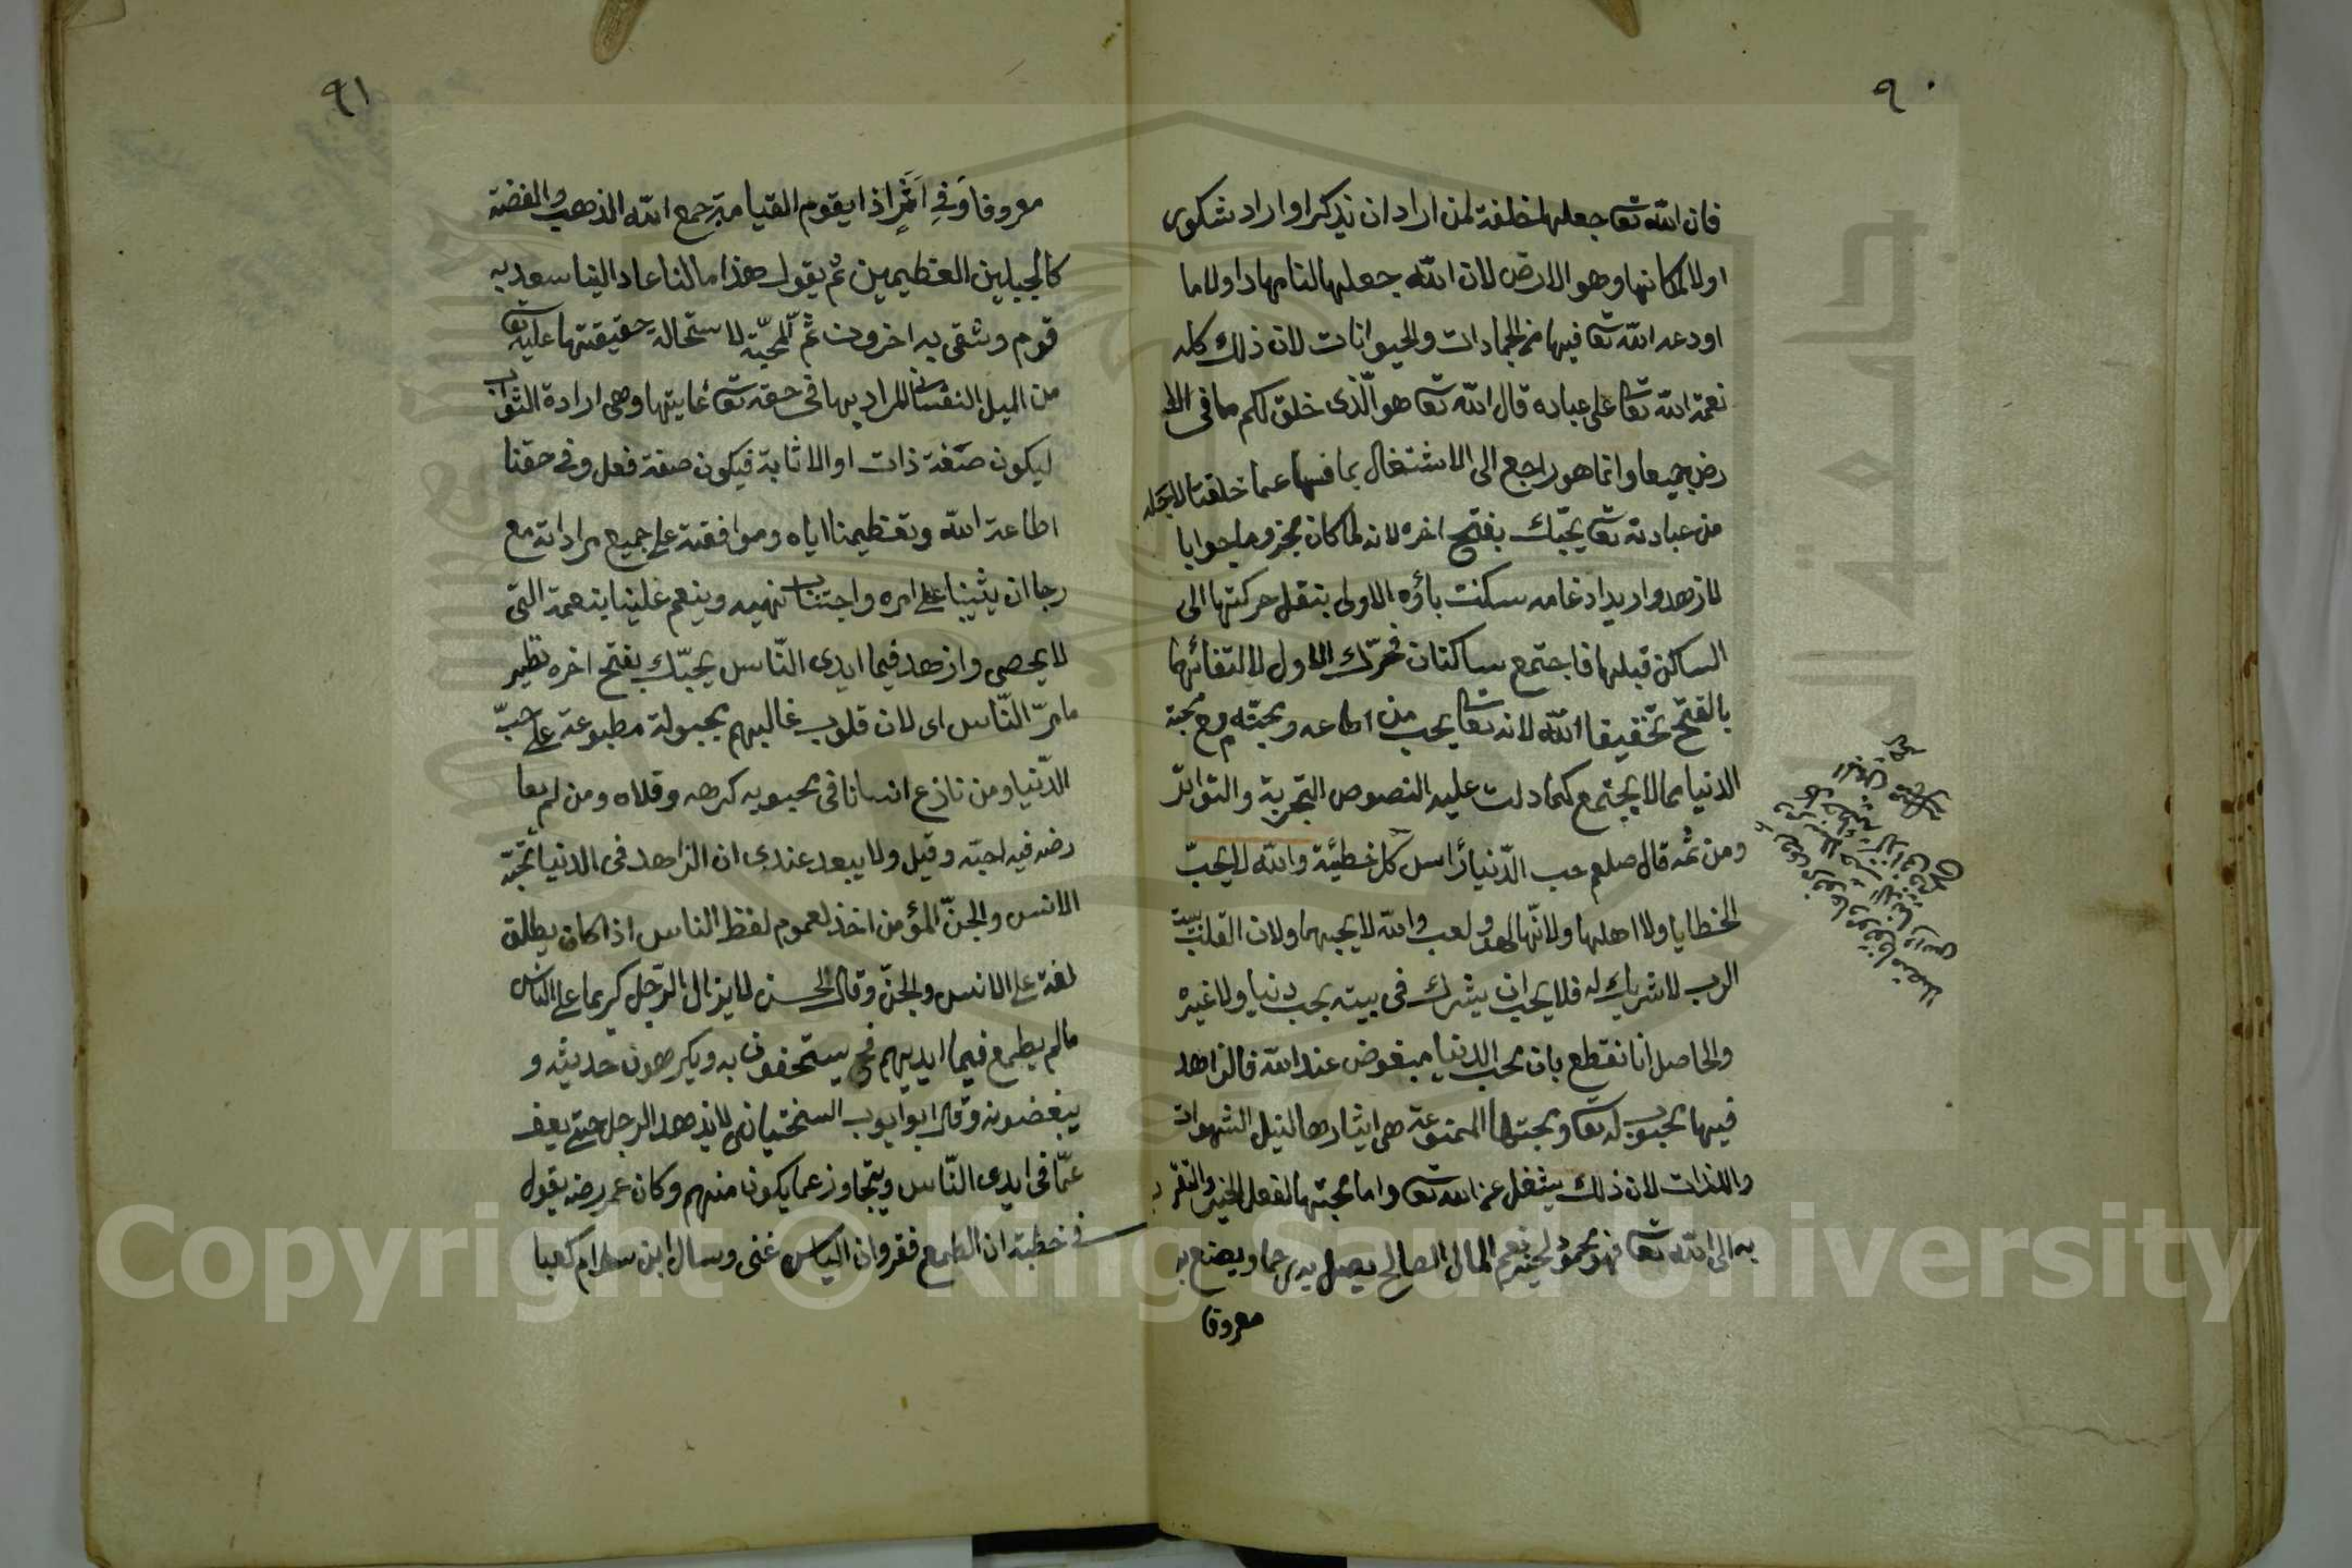 ٩٠
فان الله تعا جعلهما خلفة لمن اراد ان يذكر او اراد شكورى
اولا لمكانها وهو الارض لان الله جعلها لنا مهادا ولا ما
اودعه الله تعا فيها من الجمادات والحيوانات لان ذلك كله
نعمة الله تعا على عباده قال الله تعا هو الّذى خلق لكم ما فى الا
رض جميعا وانما هو راجع الى الاشتغال بما فيها عما خلقنا لاجله
من عبادته تعا يحبّك بفتح اخره لانه لما كان مجزوما جوابا
لازهد واريد ادغامه سكنت باؤه الاولى بنقل حركتها الى
الساكن قبلها فاجتمع ساكنان فحرّك الاول لالتقائهما
بالفتح تخفيفا الله لانه تعا يحب من اطاعه ومحبّته مع محبة
الدنيا مما لا يجتمع كما دلت عليه النصوص التجربة والتواتر
ومن ثمه قال صلعم حب الدّنيا رأس كل خطيئة والله لا يحبّ
الخطايا ولا اهلها ولانّها لهو ولعب والله لا يحبهما ولان القلب بيت
الرب لا شريك له فلا يحب ان يشرك فى بيته بحب دنيا ولا غيره
والحاصل انا نقطع بان محب الدنيا مبغوض عند الله فالزاهد
فيها محبوب له تعا ومحبتها الممنوعة هى ايثارها لنيل الشهوات
واللذات لان ذلك يشغل عن الله تعا واما محبتها لفعل الخير والتقرب
به الى الله تعا فهو محمود لخبر نعم المال الصالح يصل به رحما ويصنع به
معروفا
٩١
معروفا وَفى اَثَرٍ اذا يقوم القيامة جمع الله الذهب والفضة
كالجبلين العظيمين ثم يقول هذا مالنا عاد الينا سعد به
قوم وشقى به اخرون ثم المحبّة لاستحالة حقيقتها عليه تعا
من الميل النفسانى المراد بها فى حقه تعا غايتها وهى ارادة الثواب
ليكون صفة ذات او الاثابة فيكون صفة فعل وفى حقنا
اطاعة الله وتعظيمنا اياه وموافقته على جميع مراداته مع
رجا ان يثيبنا على امره واجتناب نهيه وينعم علينا بنعمة التى
لا يحصى وازهد فيما ايدى النّاس يحبّك بفتح اخره نظير
ما مرّ النّاس اى لان قلوب غالبهم مجبولة مطبوعة على حبّ
الدّنيا ومن نازع انسانا فى محبوبه كرهه وقلاه ومن لم يعا
رضه فيه احبّه وقيل ولا يبعد عندى ان الزاهد فى الدنيا تحبّه
الانس والجنّ المؤمن اخذ لعموم لفظ الناس اذا كان يطلق
لغة على الانس والجنّ وقال الحسن لا يزال الرّجل كريما على الناس
مالم يطمع فيما ايديهم فح يستخفون به ويكرهون حديثه و
يبغضونه وقال ابو ايوب السختيانى لا يزهد الرجل حتى يعف
عمّا فى ايدى النّاس ويتجاوز عما يكون منهم وكان عمر رضه يقول
فى خطبته ان الطمع فقر وان الياس غنى وسال ابن سلام كعبا
Copyright © King Saud University